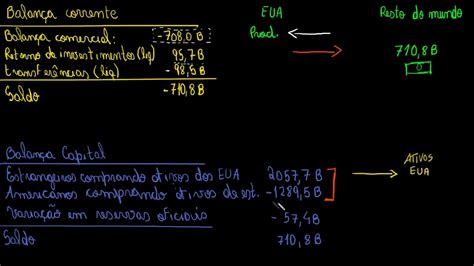 Balança corrente
Balança comercial: -708,0 B
Retorno de investimentos (liq) 95,7 B
transferências (liq) -98,5 B
Saldo -710,8 B
EUA
Prod.
Resto do mundo
710,8 B
Balança Capital
Estrangeiros comprando ativos dos EUA 2057,7 B
Americanos comprando ativos de est. -1289,5 B
Variação em reservas oficiais -57,4 B
Saldo 710,8 B
ATIVOS
EUA